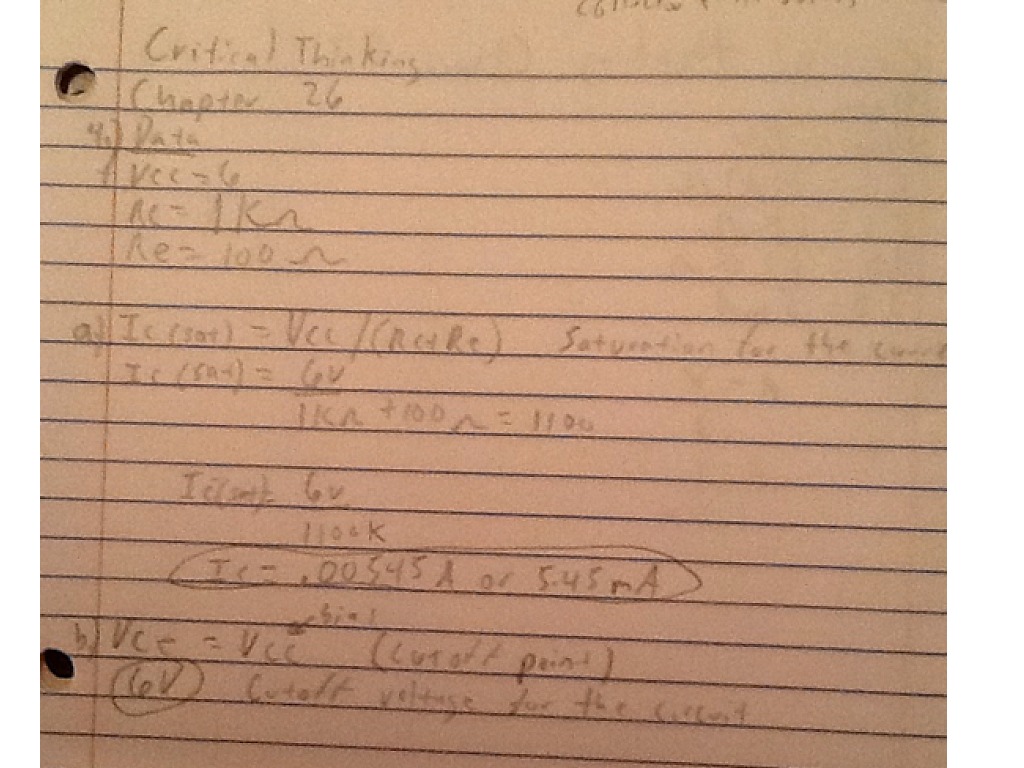 Critical Thinking
Chapter 26
4.) Data
Vcc = 6
Rc = 1KΩ
Re = 100 Ω
a) Ic(sat) = Vcc/(Rc+Re) Saturation for the
Ic(sat) = 6V
1KΩ + 100Ω = 1100
Ic(sat) = 6v
1100K
Ic = .00545A or 5.45mA
b) VCE = Vcc (cutoff point)
6V Cutoff voltage for the circuit